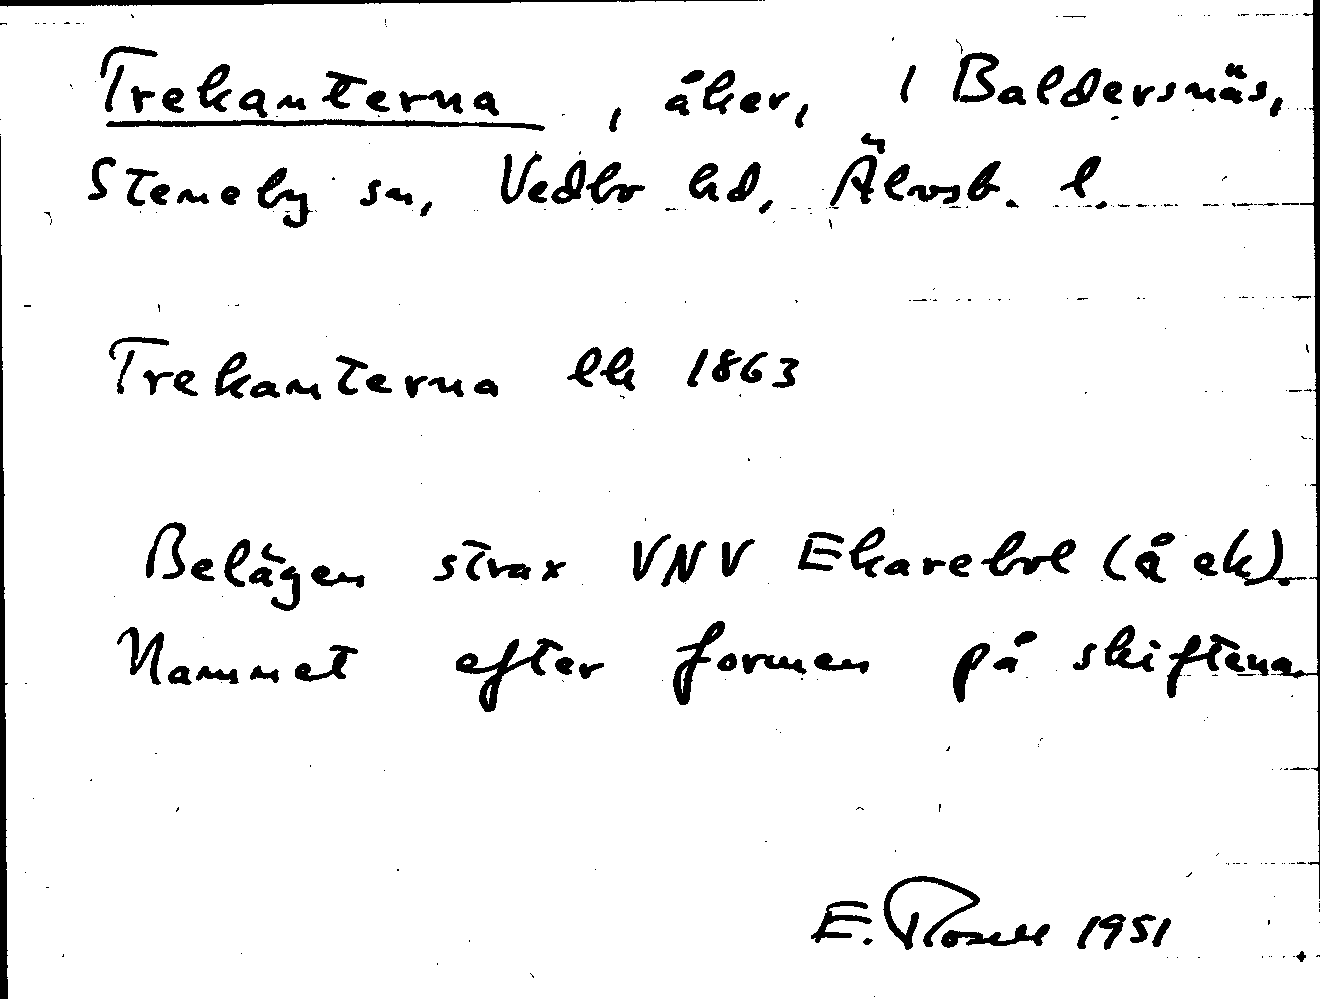 Trekanterna, åker, i Baldersnäs,
Steneby sn, Vedbo hd, Älvsb. l.
Trekanterna lk 1863
Belägen strax VNV Ekarebol (å ek).
Namnet efter formen på skiftena.
E. Rosell 1951